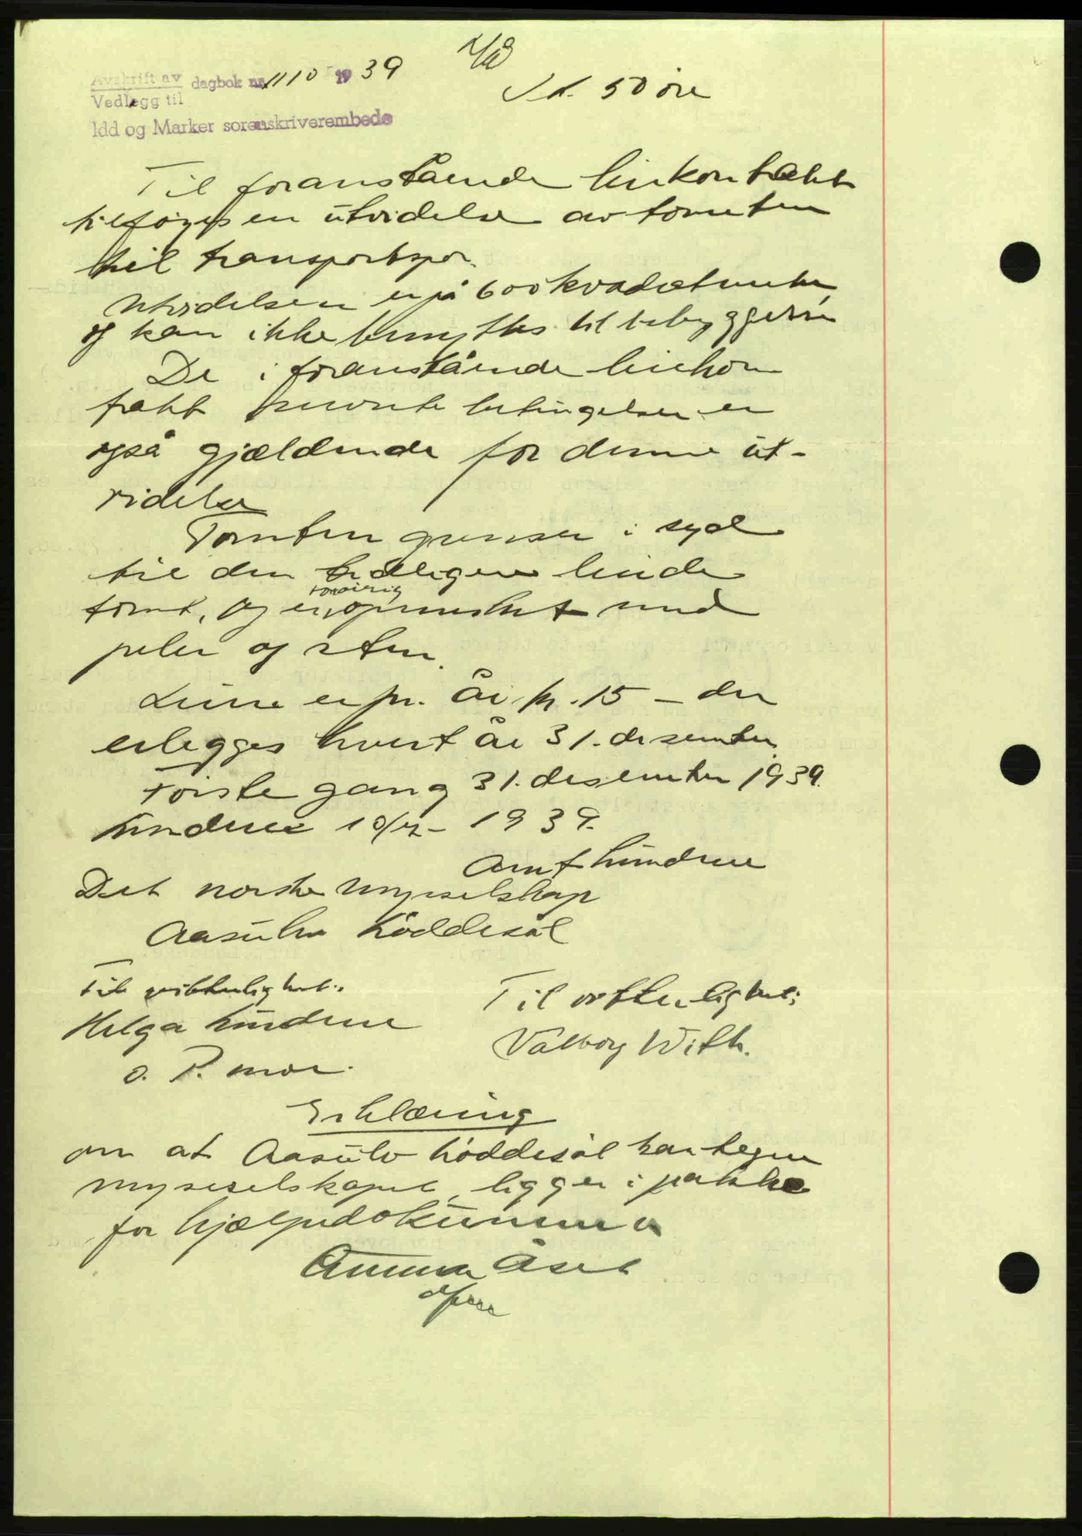 Avskrift av
Vedlegg til
dagbok nr. 1110 1939
Idd og Marker sorenskriverembede
St. 50 öre
Til foranstående leiekontrakt
tilföyes en utvidelse av tomten
til transportspor.
Utvidelsen er på 600 kvadratmeter
og kan ikke benyttes til bebyggelse
De i foranstående leiekon
trakt nevnte betingelser er
også gjældende for denne ut-
videlse
Tomten grenser i syd
til den tidligere leiede
tomt, og er foreløpig opmerket med
peler og sten.
Leien er pr. år kr. 15 - der
erlegges hvert år 31. desember
Förste gang 31. desember 1939.
1939.
Det norske myrselskap
Aasulv Löddesöl
Til vitterlighet:
Til vitterlighet:
Helga
Valborg With.
O. P. moe.
Erklæring
om at Aasulv Löddesöl kan tegne
myrselskapet, ligger i pakke
for hjælpedokumenter